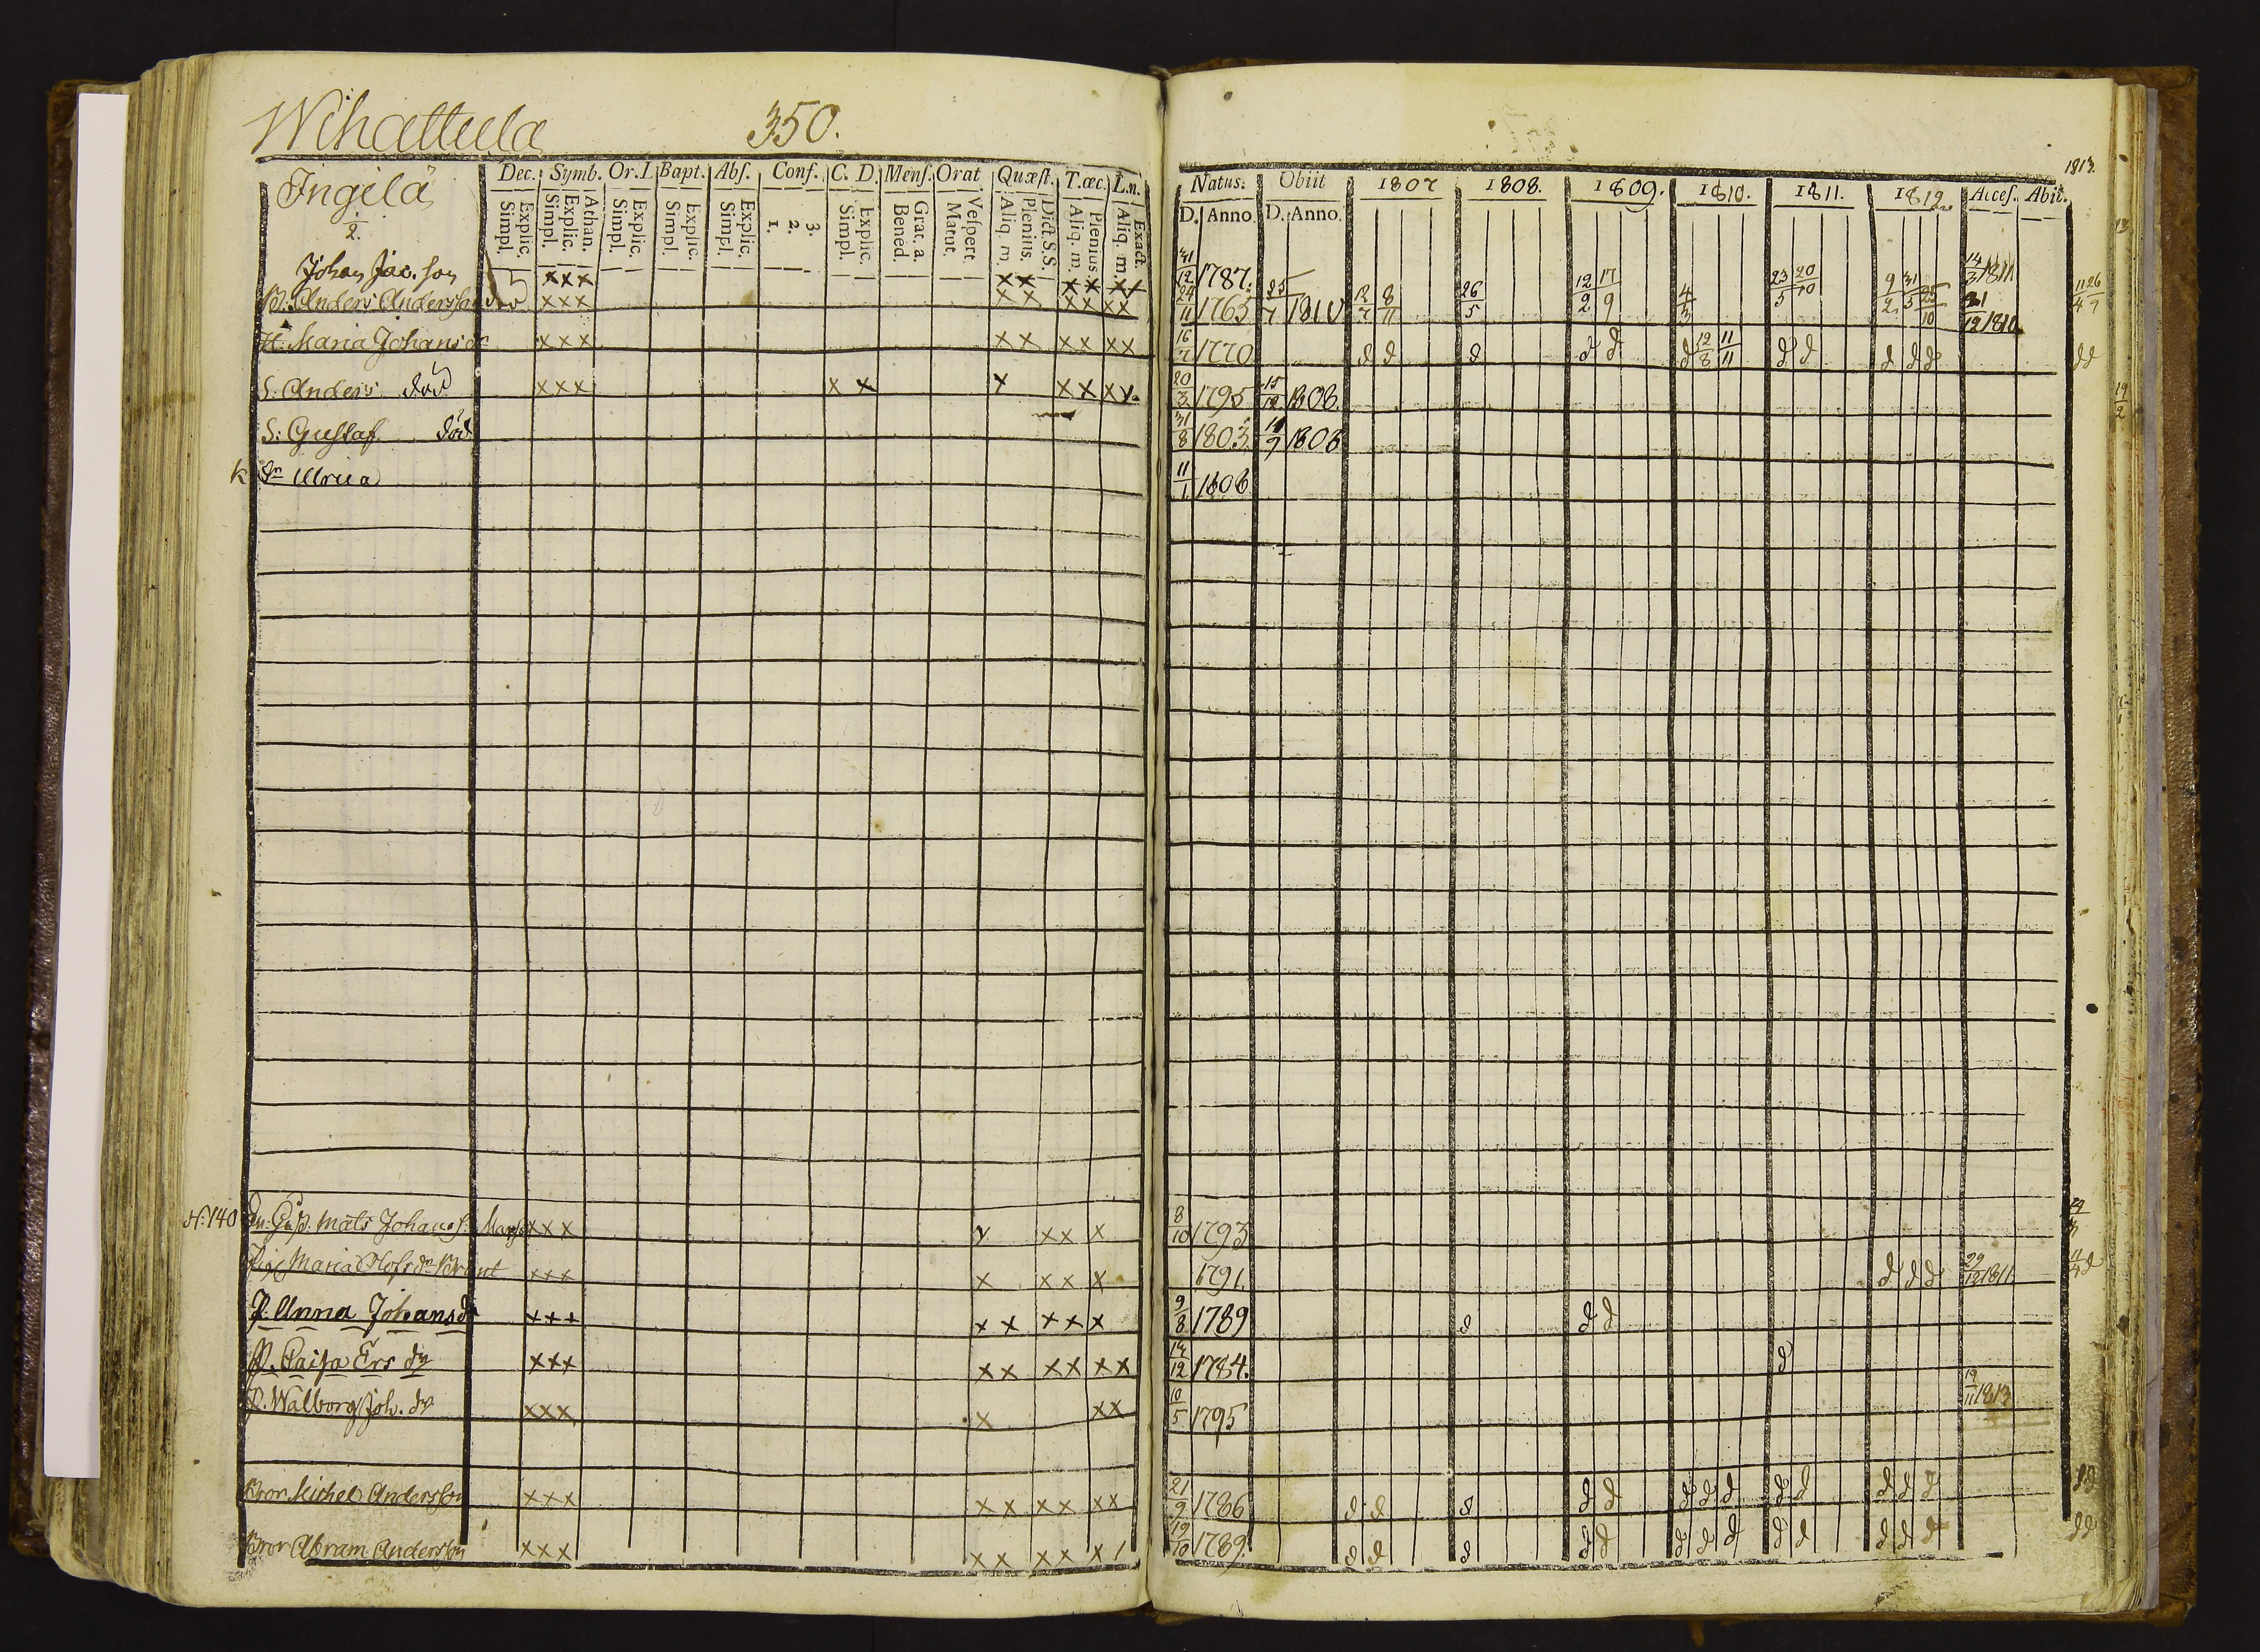 Wihattula 350.
Ingilä
2.
Dec. Symb. Or.I. Bapt. Abſ. Conf. C. D. Menſ. Orat Quæſt. T.œc. L.n.
Explic. Simpl. Athan. Explic. Simpl. Explic. Simpl. Explic. Simpl. Explic. Simpl. 3. 2. 1. Explic. Simpl. Grat. a. Bened. Veſpert. Matut. Dict.S.S. Plenius. Aliq. m. Plenius. Aliq. m. Exact. Aliq. m.
1813.
Natus. Obiit 1807 1808. 1809. 1810. 1811. 1812. Acceſ. Abiit.
D. Anno. D. Anno.
Johan Jac. son xxx xx xx xx 31/12 1787. 23/5 20/10 9/2 31/5 25/10 14/3 1811 11/4 26/9
Anders Andersson död xxx xx xx xx 24/11 1765 25/7 1810 12/7 8/11 26/5 12/2 17/9 4/3 21/12 1810
H. Maria Johansdr xxx xx xx xx 16/7 1770 d d d d d d 12/8 11/11 d d d d d d d
S. Anders död xxx x x x xx xx 20/3 1795 15/12 1808.
S: Gustaf död 31/8 1803 1808
k Dr Ulrica 11/1 1806
N:140 Mats Johans. xxx x xx x 8/10 1793
Pig Maria Olofsdr xxx x xx x 1791. d d d 29/12 1811 11/4 d
P. Anna Johansdr xxx x x xx x 9/8 1789 d d d
P. Caisa Ersdr xxx xx xx xx 14/12 1784. d
P. Walborg Joh. dr xxx x xx 10/5 1795 19/11 1813
Bror Michel Andersson xxx xx xx xx 21/9 1786 d d d d d d d d d d d d d d d
Bror Abram Andersson xxx xx xx x 19/10 1789. d d d d d d d d d d d d d d d